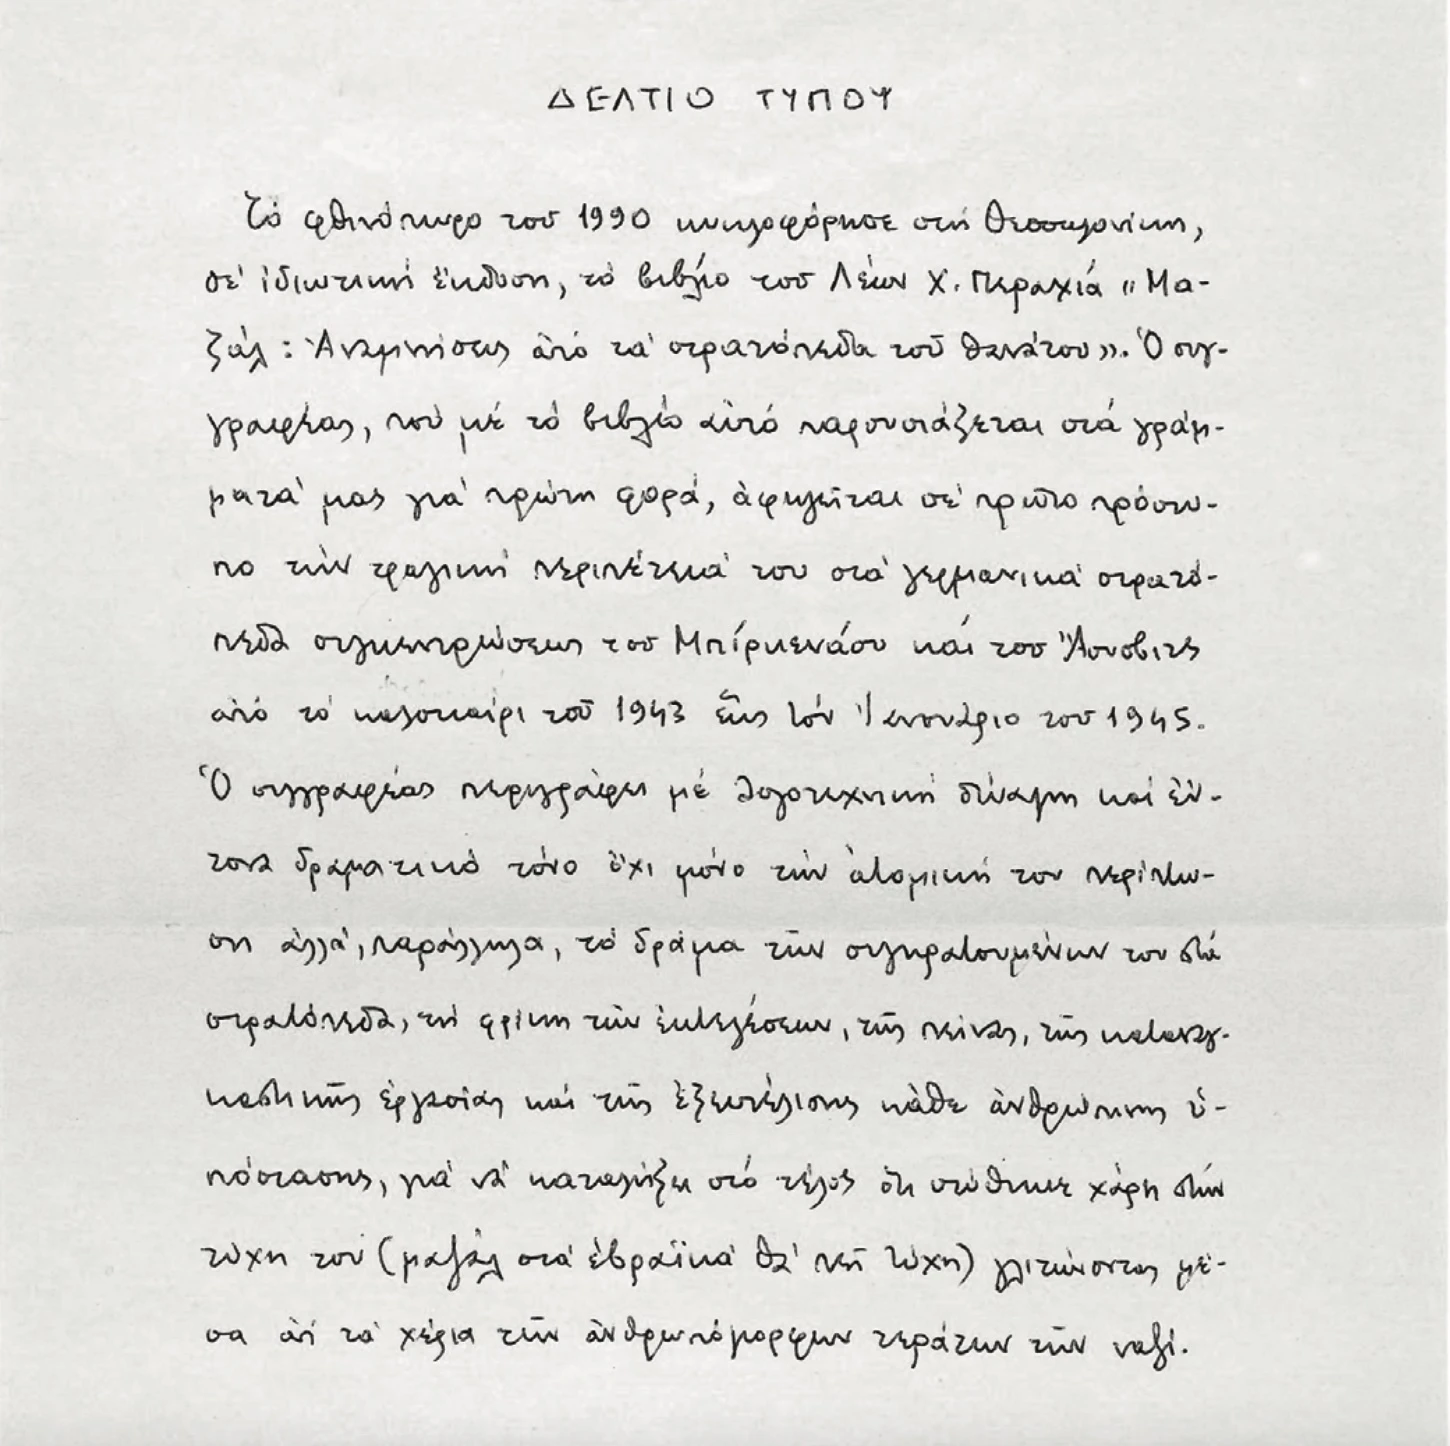 ΔΕΛΤΙΟ ΤΥΠΟΥ
Τό φθινόπωρο τοῦ 1990 κυκλοφόρησε στή Θεσσαλονίκη,
σέ ἰδιωτική ἔκδοση, τό βιβλίο τοῦ Λέων Χ. Περαχιά «Μα-
ζάλ: Ἀναμνήσεις ἀπό τά στρατόπεδα τοῦ θανάτου». Ὁ συγ-
γραφέας, πού μέ τό βιβλίο αὐτό παρουσιάζεται στά γράμ-
ματά μας γιά πρώτη φορά, ἀφηγεῖται σέ πρῶτο πρόσω-
πο τήν τραγική περιπέτειά του στά γερμανικά στρατό-
πεδα συγκεντρώσεως τοῦ Μπίρκενάου καί τοῦ Ἄουσβιτς
ἀπό τό καλοκαίρι τοῦ 1943 ἕως τόν Ἰανουάριο τοῦ 1945.
Ὁ συγγραφέας περιγράφει μέ λογοτεχνική δύναμη καί ἔν-
τονα δραματικό τόνο ὄχι μόνο τήν ἀτομική του περίπτω-
ση ἀλλά, παράλληλα, τό δράμα τῶν συγκρατουμένων του στά
στρατόπεδα, τή φρίκη τῶν ἐκτελέσεων, τῆς πείνας, τῆς καταναγ-
καστικῆς ἐργασίας καί τῆς ἐξευτέλισης κάθε ἀνθρώπινης ὑ-
πόστασης, γιά νά καταλήξει στό τέλος ὅτι σώθηκε χάρη στήν
τύχη του (μαζάλ στά ἑβραϊκά θά πεῖ τύχη) γλιτώνοντας μέ-
σα ἀπ' τά χέρια τῶν ἀνθρωπόμορφων τεράτων τῶν ναζί.